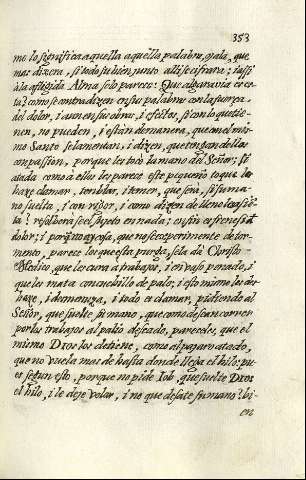 353
me lo significa aquella aquella palabra, ojala, que
mas dixera, si todo su bien junto alli se cifrara; i assi
à la afligida Alma solo parece: Que algaravia es es-
ta? como se contradizen en su palabra con la fuerza,
del dolor, i aun en sus obras, i efectos, si con lo que tie-
nen, no pueden, i están de manera, que con el mis-
mo Santo se lamentan, i dizen, que tengan dellos
compassion, porque les tocò la mano del Señor; si
atada como à ellos les parece este pequeño toque los
haze clamar, temblar, i temer, que serà, si su ma-
no suelta, i con rigor, i como dizen de lleno les assiē-
ta? resolverà se el sugeto en nada:
dolor; i porq̃ no ay cosa, que no se experimente de tor-
mento, parece los que esta purga, se la dà Christo
Medico, que les cura a trabajos, i en vaso penado, i
que les mata con cuchillo de palo; i esto mismo les des
haze, i desmenuza, i todo es clamar, pidiendo al
Señor, que suelte su mano, que como desean correr
por los trabajos al palio deseado, pareceles, que el
mismo Dios los detiene, como al pajaro atado,
que no vuela mas de hasta donde llega el hilo: pu-
es segun esto, porque no pide Iob, que suelte Dios
el hilo, i le deje volar, i no que desate su mano? bi-
en